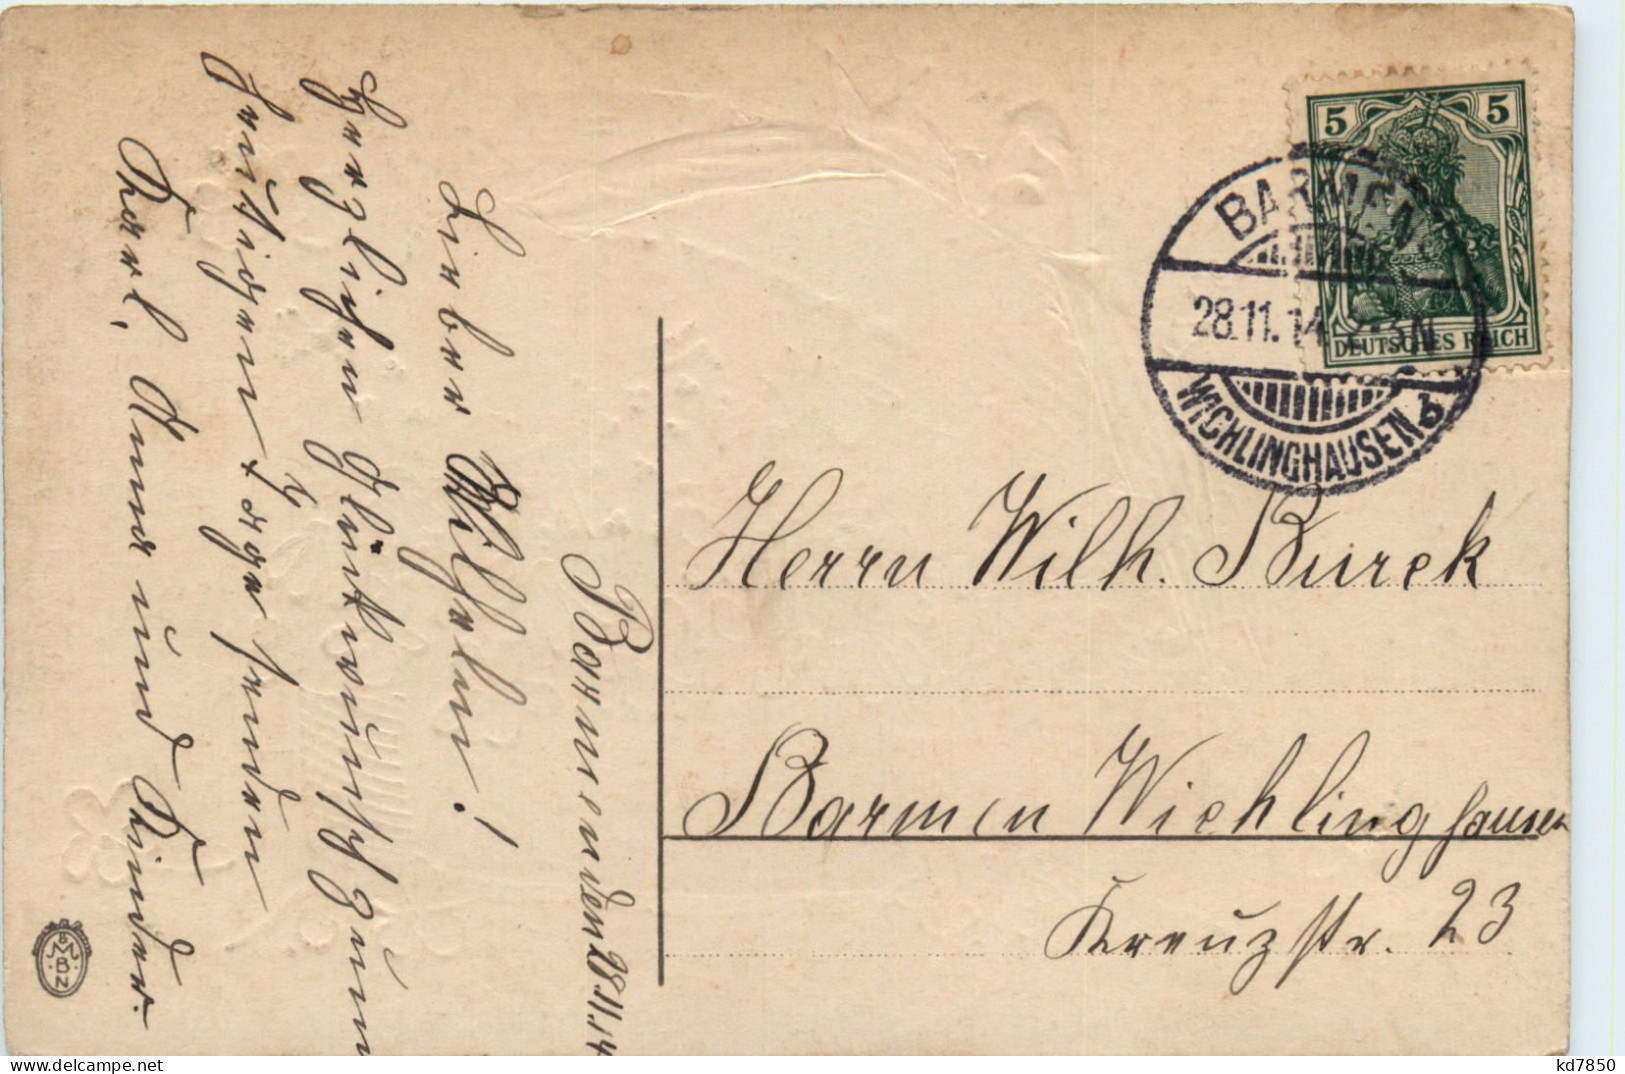 Barmen den 28.11.14
Lieber Wilhelm!
Herzlichen Glückwunsch zum
heutigen Tage senden
Karl, Anna und Kinder.
5 5
DEUTSCHES REICH
BARMEN
28.11.14. 2-3N.
WICHLINGHAUSEN b
Herrn Wilh. Burek
Barmen Wichlinghausen
Kreuzstr. 23
delcampe.net
kd7850